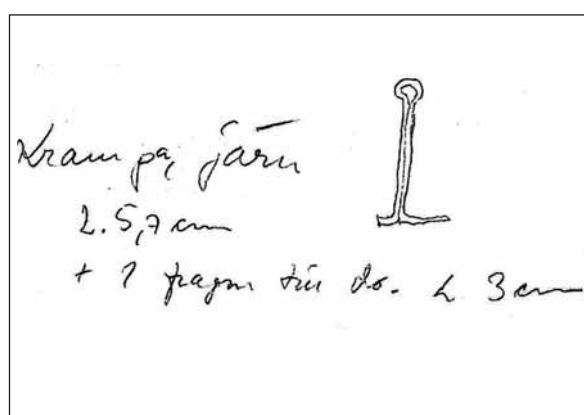 Krampa, järn
L. 5,7 cm
+ 1 fragm till do. L 3 cm